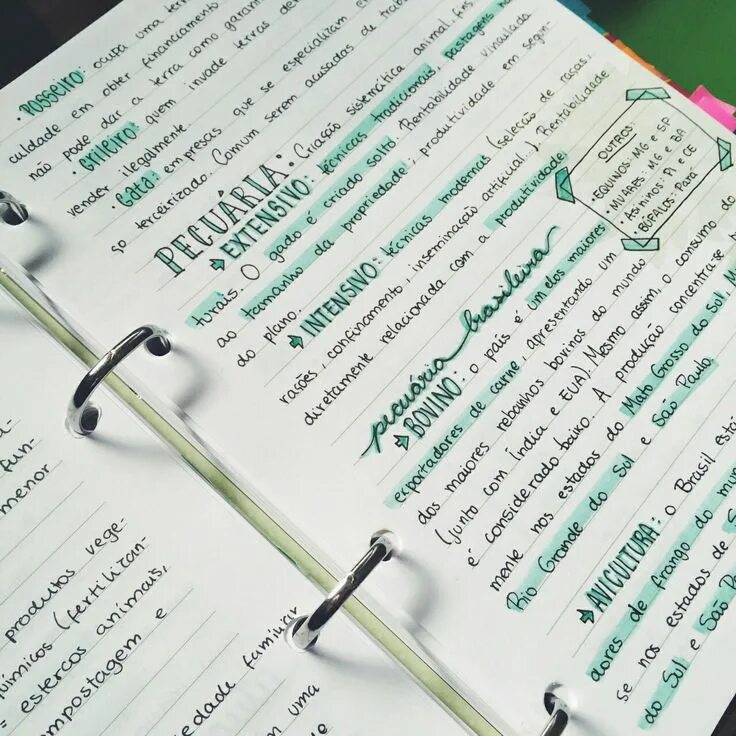 • POSSEIRO: ocupa uma terra
culdade em obter financiamento
não pode dar a terra como garan
• Grileiro: quem invade terras de
vender ilegalmente
• Gatos: empresas que se especializam e
ço terceirizado. Comum serem acusadas de traba
PECUÁRIA: Criação sistemática animal, fins
EXTENSIVO: técnicas tradicionais, pastagens na
turais. O gado é criado solto. Rentabilidade vinculada
ao tamanho da propriedade; produtividade em segun
do plano.
INTENSIVO: técnicas modernas (seleção de raças,
rações, confinamento, inseminação artificial...). Rentabilidade
diretamente relacionada com a produtividade.
OUTROS:
• EQUINOS: MG e SP
• MUARES: MG e BA
• Asininos: PI e CE
• BÚFALOS: Pará
pecuária brasileira
BOVINO: o país é um dos maiores
exportadores de carne, apresentando um
dos maiores rebanhos bovinos do mundo
(junto com Índia e EUA). Mesmo assim, o consumo do
é considerado baixo. A produção concentra-se
mente nos estados do Mato Grosso do Sul, M
Rio Grande do Sul e São Paulo
AVICULTURA: o Brasil est
dores de frango do mun
se nos estados de S
do Sul e São Pa
fun-
menor
produtos vege-
químicos (fertilizan-
= estercos animais,
ompostagem e
edade familiar
em uma